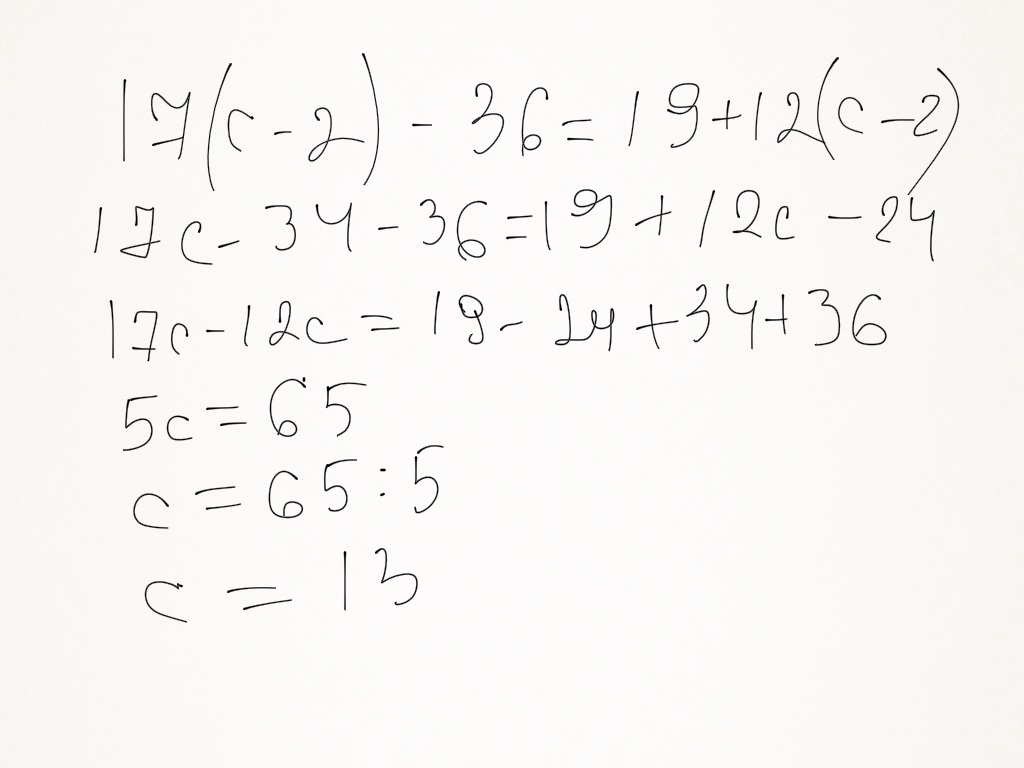 17(c-2) - 36 = 19+12(c-2)
17c - 34 - 36 = 19 + 12c - 24
17c - 12c = 19 - 24 + 34 + 36
5c = 65
c = 65 : 5
c = 13